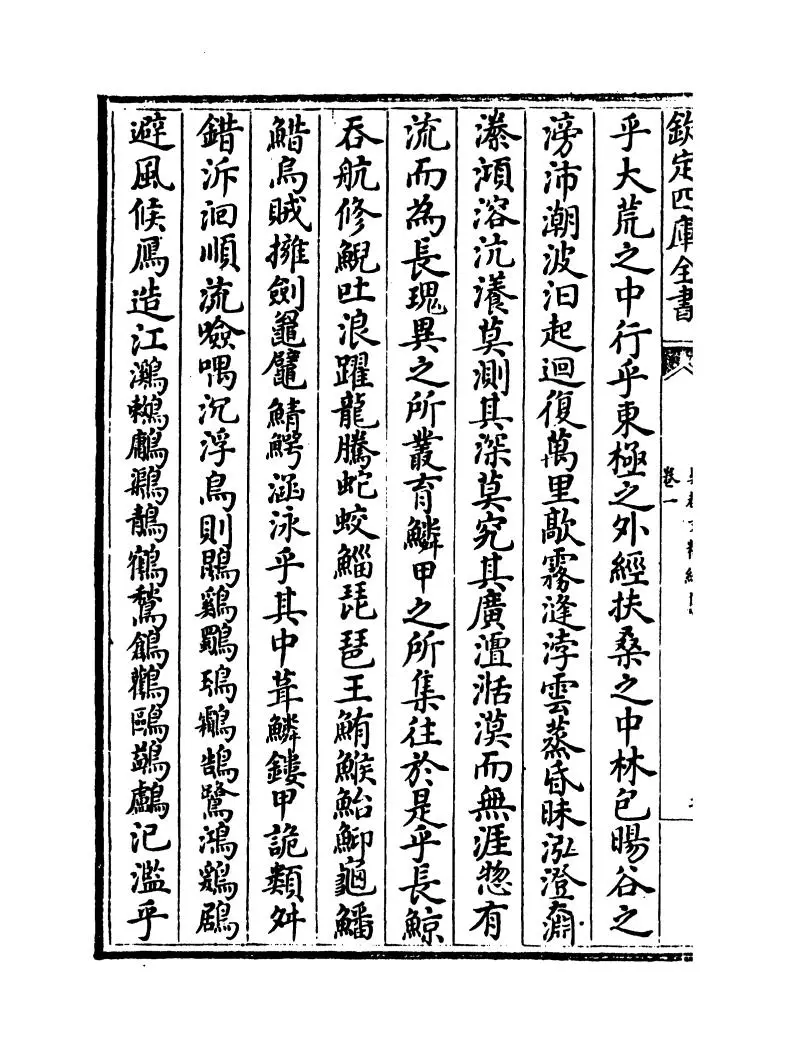 欽定四庫全書
卷一
乎大荒之中行乎東極之外經扶桑之中林包暘谷之
滂沛潮波汩起迴復萬里歊霧漨浡雲蒸昏昧泓澄奫
潫澒溶沆瀁莫測其深莫究其廣澶湉漠而無涯惣有
流而為長瑰異之所叢育鱗甲之所集往於是乎長鯨
吞航修鯢吐浪躍龍騰蛇蛟鯔琵琶王鮪鯸鮐鮣龜鱕
鯌烏賊擁劍𪓟鼊鯖鰐涵泳乎其中葺鱗鏤甲詭類舛
錯泝洄順流噞喁沉浮鳥則鵾鷄鸀鳿鸘鵠鷺鴻鶢鶋
避風候鴈造江鸂鷘鷛鶄鶴鶖鶬鸛鷗鷁鸕氾濫乎